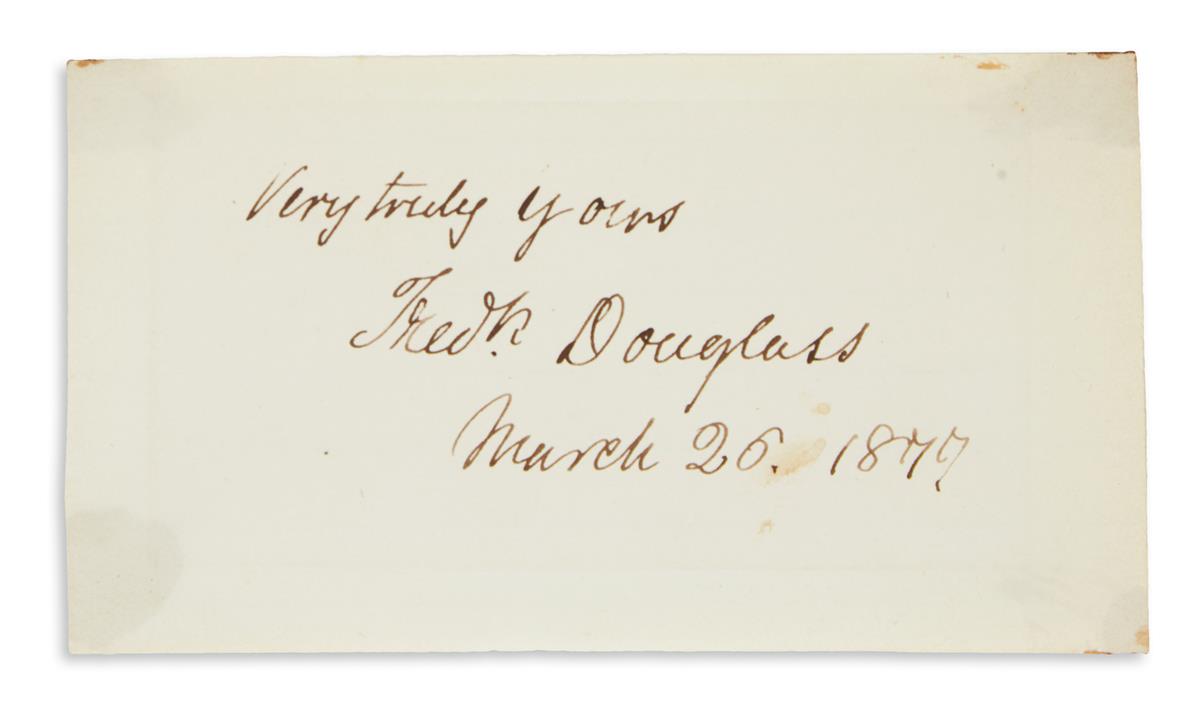 Very truly yours
Fredk. Douglass
March 26. 1877